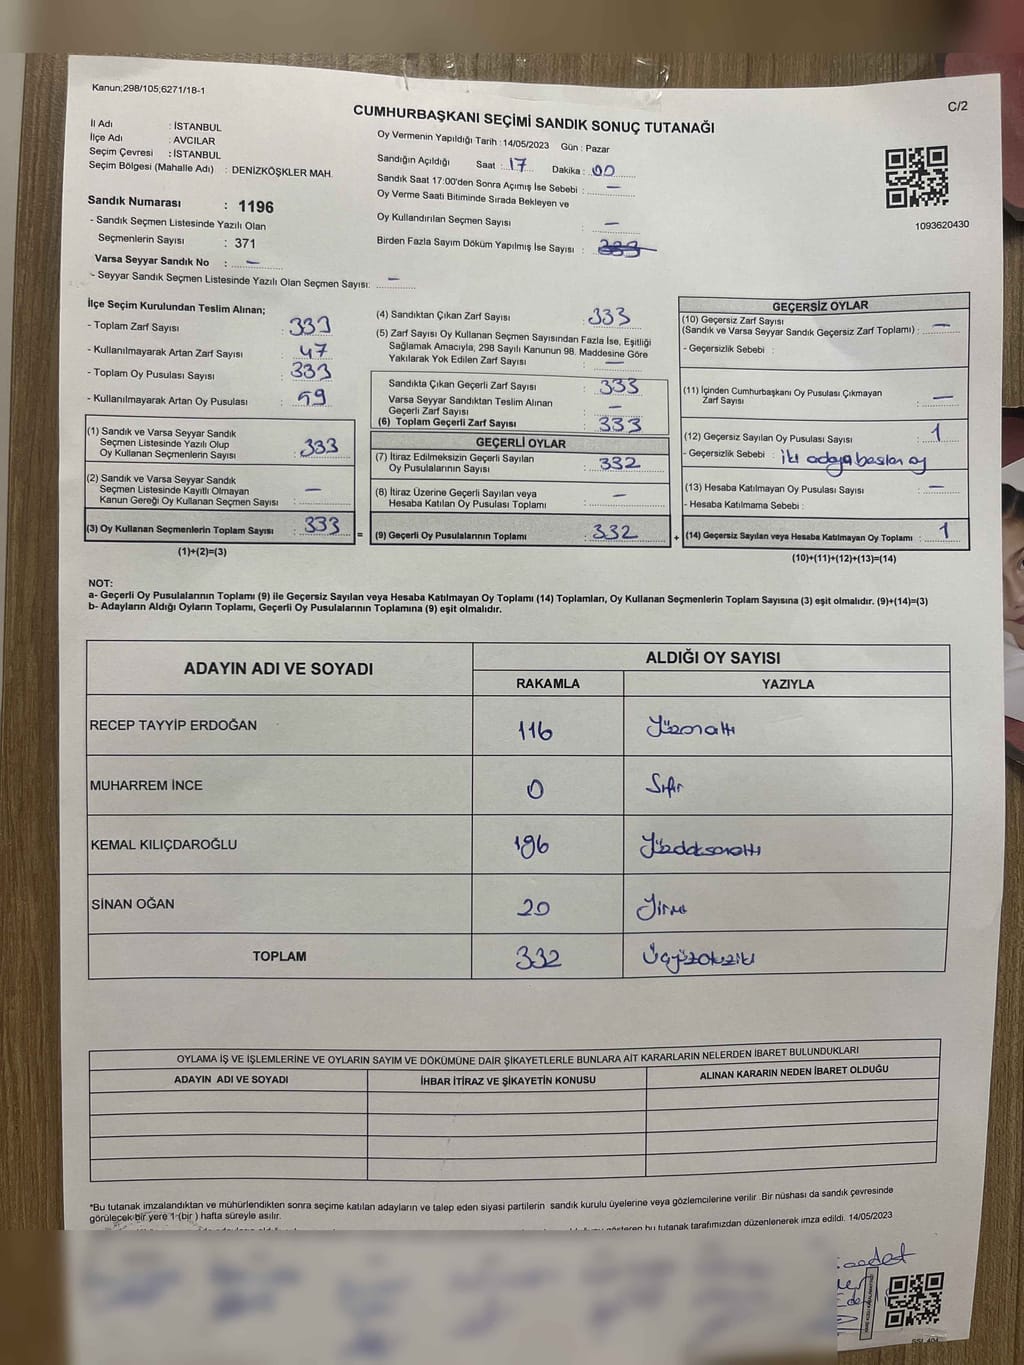 Kanun;298/105;6271/18-1
C/2
CUMHURBAŞKANI SEÇİMİ SANDIK SONUÇ TUTANAĞI
İl Adı : İSTANBUL
İlçe Adı : AVCILAR
Seçim Çevresi : İSTANBUL
Seçim Bölgesi (Mahalle Adı) : DENİZKÖŞKLER MAH.
Oy Vermenin Yapıldığı Tarih : 14/05/2023 Gün : Pazar
Sandığın Açıldığı Saat : 17 Dakika : 00
Sandık Saat 17:00'den Sonra Açımış İse Sebebi : —
Oy Verme Saati Bitiminde Sırada Bekleyen ve
Oy Kullandırılan Seçmen Sayısı : —
Birden Fazla Sayım Döküm Yapılmış İse Sayısı : 333
1093620430
Sandık Numarası : 1196
- Sandık Seçmen Listesinde Yazılı Olan
Seçmenlerin Sayısı : 371
Varsa Seyyar Sandık No : —
- Seyyar Sandık Seçmen Listesinde Yazılı Olan Seçmen Sayısı: —
İlçe Seçim Kurulundan Teslim Alınan;
- Toplam Zarf Sayısı :
- Kullanılmayarak Artan Zarf Sayısı : 47
- Toplam Oy Pusulası Sayısı : 333
- Kullanılmayarak Artan Oy Pusulası : 59
(1) Sandık ve Varsa Seyyar Sandık
Seçmen Listesinde Yazılı Olup
Oy Kullanan Seçmenlerin Sayısı : 333
(2) Sandık ve Varsa Seyyar Sandık
Seçmen Listesinde Kayıtlı Olmayan
Kanun Gereği Oy Kullanan Seçmen Sayısı : —
(3) Oy Kullanan Seçmenlerin Toplam Sayısı : 333
(1)+(2)=(3)
=
(4) Sandıktan Çıkan Zarf Sayısı : 333
(5) Zarf Sayısı Oy Kullanan Seçmen Sayısından Fazla İse, Eşitliği
Sağlamak Amacıyla, 298 Sayılı Kanunun 98. Maddesine Göre
Yakılarak Yok Edilen Zarf Sayısı : —
Sandıkta Çıkan Geçerli Zarf Sayısı : 333
Varsa Seyyar Sandıktan Teslim Alınan
Geçerli Zarf Sayısı : —
(6) Toplam Geçerli Zarf Sayısı : 333
GEÇERLİ OYLAR
(7) İtiraz Edilmeksizin Geçerli Sayılan
Oy Pusulalarının Sayısı : 332
(8) İtiraz Üzerine Geçerli Sayılan veya
Hesaba Katılan Oy Pusulası Toplamı : —
(9) Geçerli Oy Pusulalarının Toplamı : 332
+
GEÇERSİZ OYLAR
(10) Geçersiz Zarf Sayısı
(Sandık ve Varsa Seyyar Sandık Geçersiz Zarf Toplamı) : —
- Geçersizlik Sebebi :
(11) İçinden Cumhurbaşkanı Oy Pusulası Çıkmayan
Zarf Sayısı : —
(12) Geçersiz Sayılan Oy Pusulası Sayısı : 1
- Geçersizlik Sebebi : iki adaya basılan oy
(13) Hesaba Katılmayan Oy Pusulası Sayısı : —
- Hesaba Katılmama Sebebi :
(14) Geçersiz Sayılan veya Hesaba Katılmayan Oy Toplamı : 1
(10)+(11)+(12)+(13)=(14)
NOT:
a- Geçerli Oy Pusulalarının Toplamı (9) ile Geçersiz Sayılan veya Hesaba Katılmayan Oy Toplamı (14) Toplamları, Oy Kullanan Seçmenlerin Toplam Sayısına (3) eşit olmalıdır. (9)+(14)=(3)
b- Adayların Aldığı Oyların Toplamı, Geçerli Oy Pusulalarının Toplamına (9) eşit olmalıdır.
ADAYIN ADI VE SOYADI
ALDIĞI OY SAYISI
RAKAMLA YAZIYLA
RECEP TAYYİP ERDOĞAN 116 Yüzonaltı
MUHARREM İNCE 0 Sıfır
KEMAL KILIÇDAROĞLU 196 Yüzdoksanaltı
SİNAN OĞAN 20 Yirmi
TOPLAM 332 Üçyüzotuziki
OYLAMA İŞ VE İŞLEMLERİNE VE OYLARIN SAYIM VE DÖKÜMÜNE DAİR ŞİKAYETLERLE BUNLARA AİT KARARLARIN NELERDEN İBARET BULUNDUKLARI
ADAYIN ADI VE SOYADI İHBAR İTİRAZ VE ŞİKAYETİN KONUSU ALINAN KARARIN NEDEN İBARET OLDUĞU
*Bu tutanak imzalandıktan ve mühürlendikten sonra seçime katılan adayların ve talep eden siyasi partilerin sandık kurulu üyelerine veya gözlemcilerine verilir. Bir nüshası da sandık çevresinde
görülecek bir yere 1 (bir) hafta süreyle asılır.
gösteren bu tutanak tarafımızdan düzenlenerek imza edildi. 14/05/2023